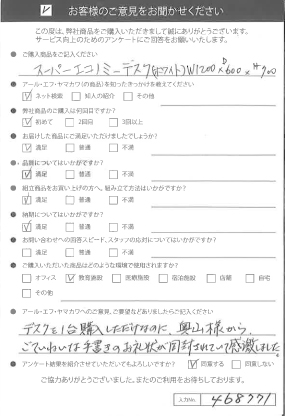 レ お客様のご意見をお聞かせください
この度は、弊社商品をご購入いただきまして誠にありがとうございます。
サービス向上のためのアンケートにご回答をお願いいたします。
● ご購入商品をご記入ください
スーパーエコノミーデスク(ホワイト)W1200×D600×H700
● アール・エフ・ヤマカワ(の商品)を知ったきっかけを教えてください
☑ネット検索 □知人の紹介 □その他
● 弊社商品のご購入は何回目ですか?
☑初めて □2回目 □3回以上
● お届けした商品にご満足いただけましたでしょうか?
☑満足 □普通 □不満
● 品質についてはいかがですか?
☑満足 □普通 □不満
● 組立商品をお買い上げの方へ。組み立て方法はいかがですか?
☑満足 □普通 □不満
● 納期についてはいかがですか?
☑満足 □普通 □不満
● お問い合わせへの回答スピード、スタッフの応対についてはいかがですか?
□満足 □普通 □不満
● ご購入いただいた商品はどのような環境で使用されますか?
□オフィス ☑教育施設 □医療施設 □宿泊施設 □店舗 □自宅
□その他
● アール・エフ・ヤマカワへのご意見、ご要望などありましたらご記入ください
デスクを1台購入しただけなのに、奥山様から、
ごていねいな手書きのお礼状が同封されていて感激しました。
● アンケート結果を紹介させていただいてもよろしいですか? ☑同意する □同意しない
ご協力ありがとうございました。またのご利用をお待ちしております。
入力No. 468771